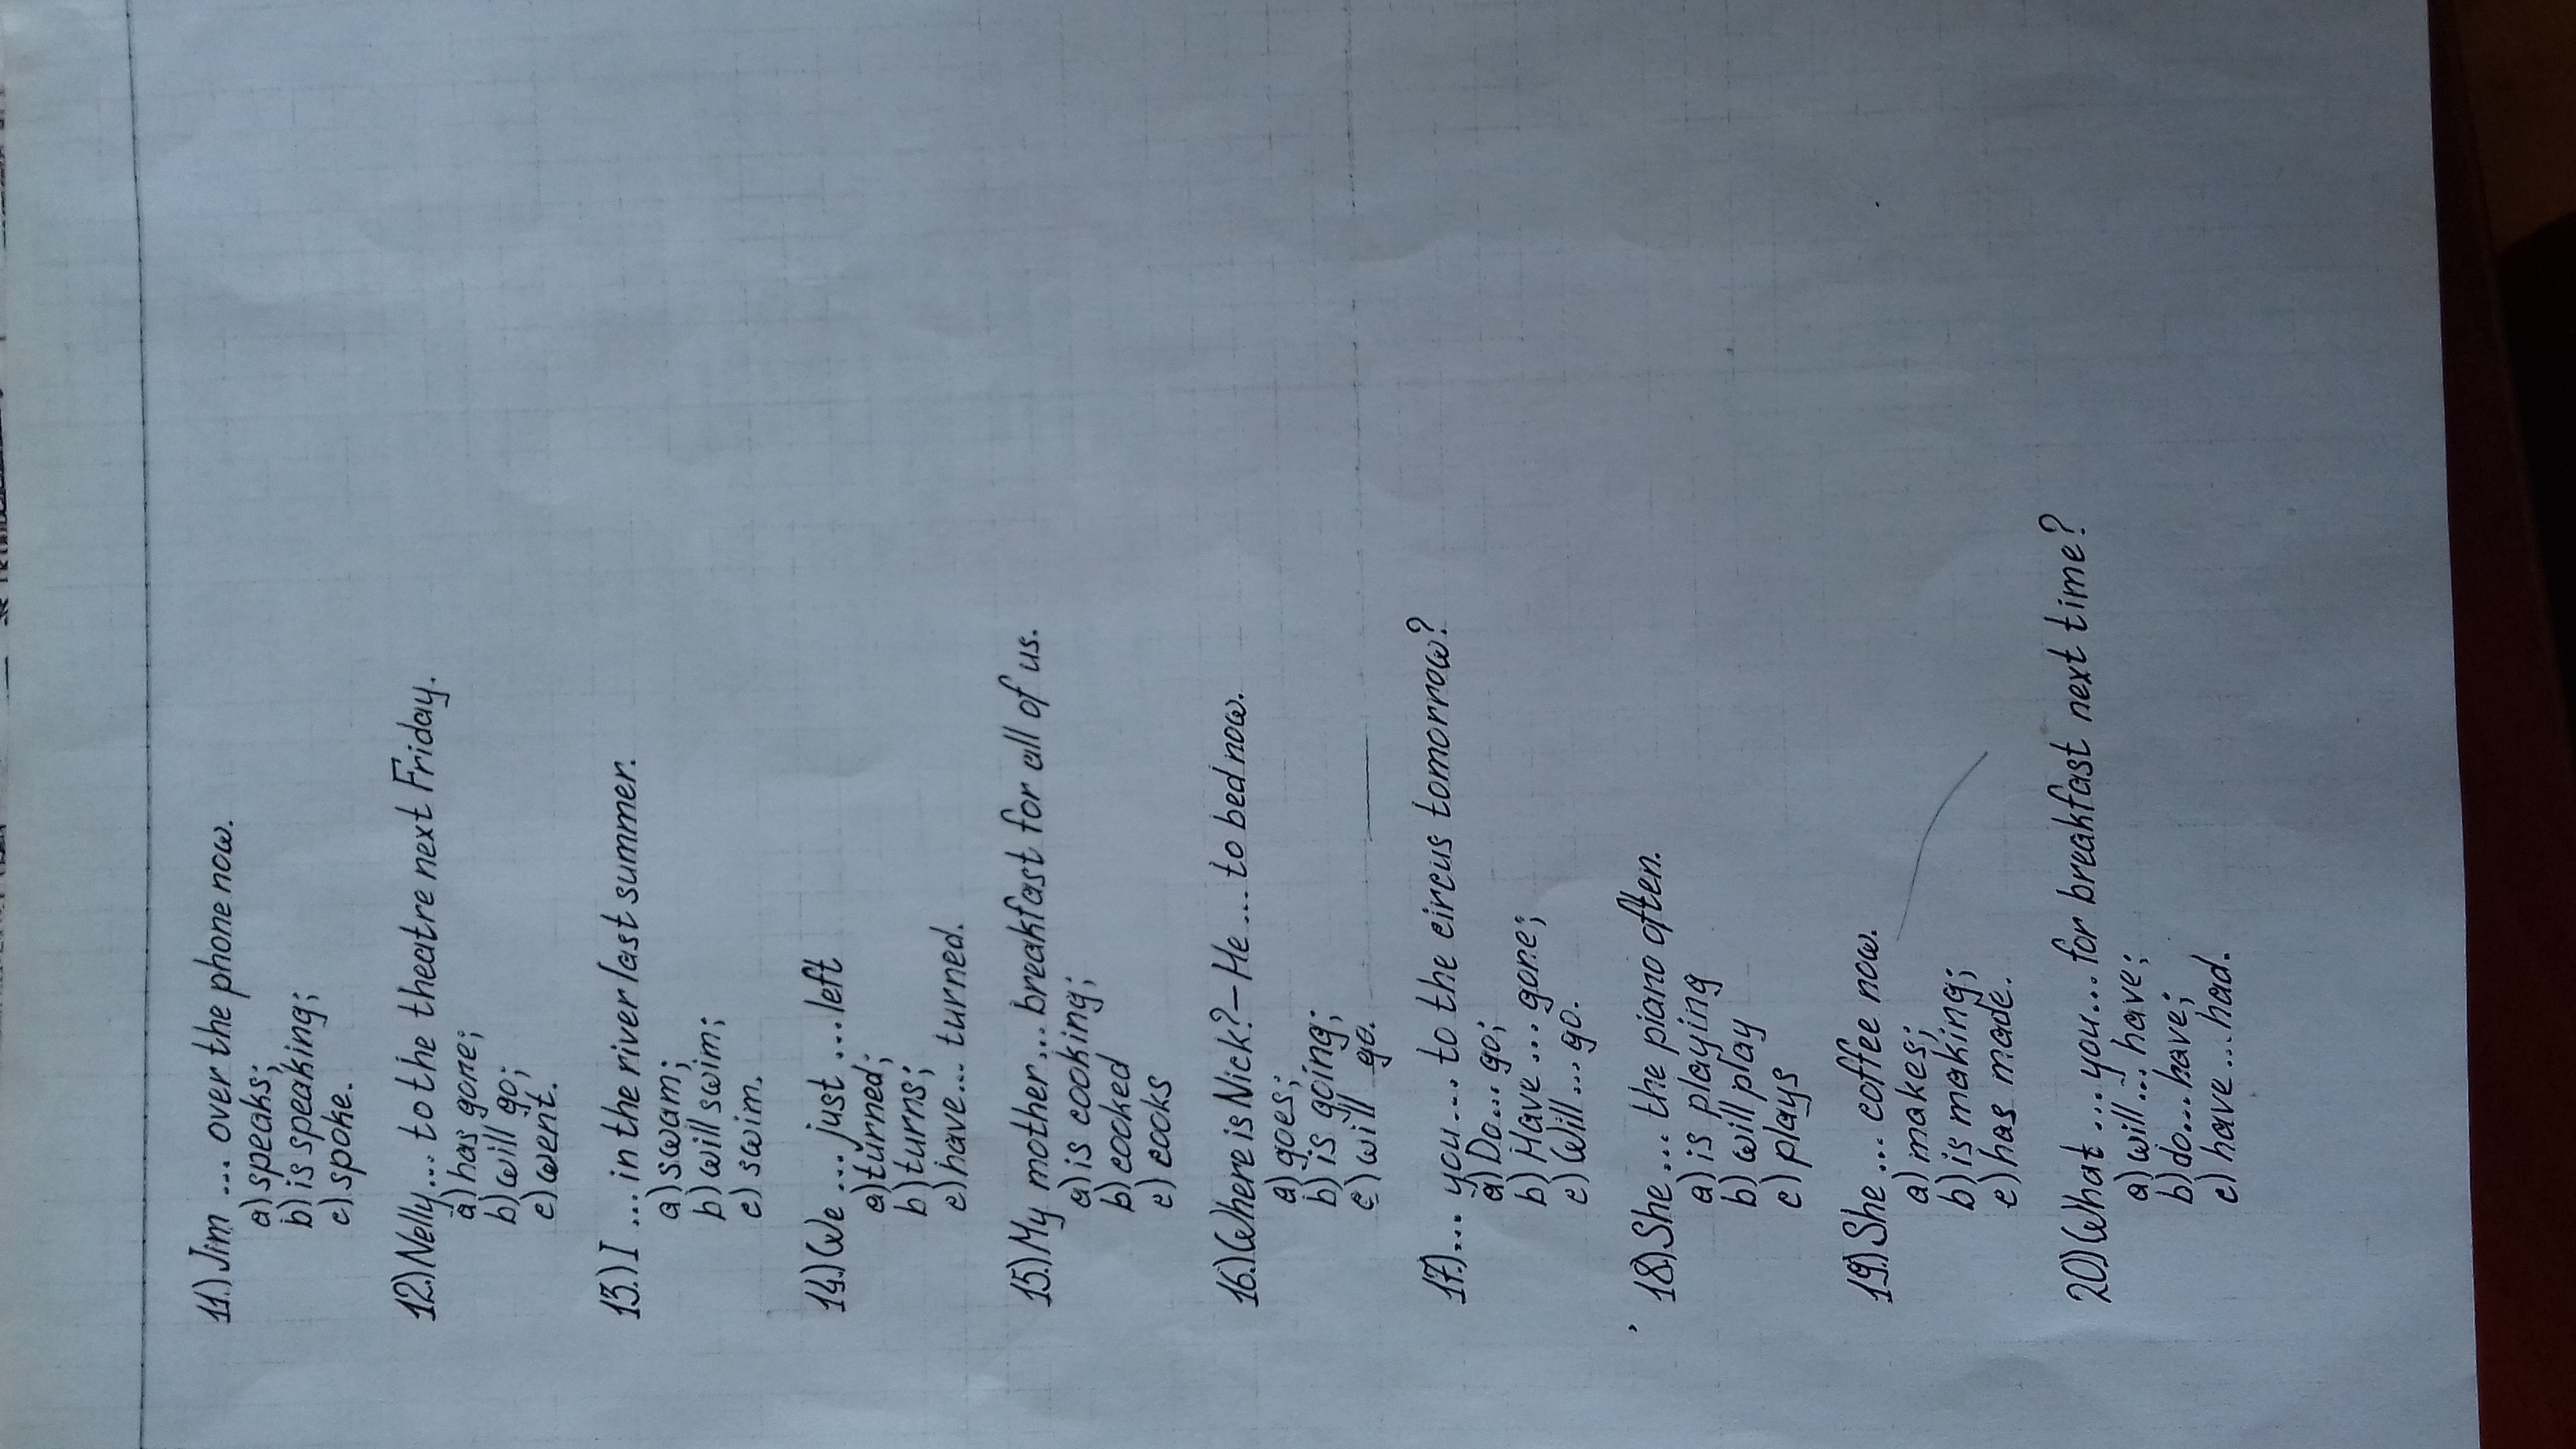 11.) Jim ... over the phone now.
a) speaks;
b) is speaking;
c) spoke.
12.) Nelly ... to the theatre next Friday.
a) has gone;
b) will go;
c) went.
13.) I ... in the river last summer.
a) swam;
b) will swim;
c) swim.
14.) We ... just ... left
a) turned;
b) turns;
c) have ... turned.
15.) My mother ... breakfast for all of us.
a) is cooking;
b) cooked
c) cooks
16.) Where is Nick? – He .... to bed now.
a) goes;
b) is going;
c) will go.
17.) ... you .... to the circus tomorrow?
a) Do ... go;
b) Have ... gone;
c) Will ... go.
18.) She ... the piano often.
a) is playing
b) will play
c) plays
19.) She ... coffee now.
a) makes;
b) is making;
c) has made.
20.) What .... you ... for breakfast next time?
a) will ... have;
b) do ... have;
c) have ... had.